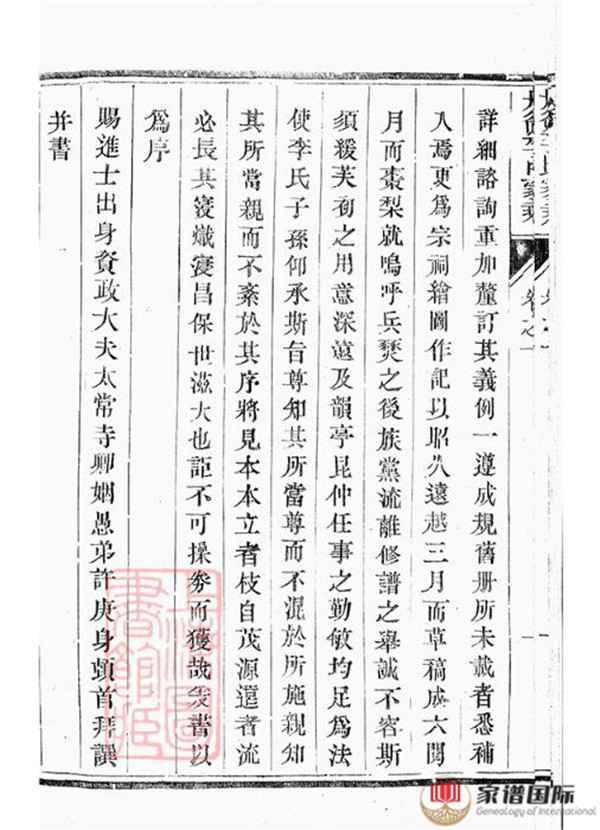 李氏家乘
卷之一
詳細諮詢重加釐訂其義例一遵成規舊册所未載者悉補
入焉更爲宗祠繪圖作記以昭久遠越三月而草稿成六閱
月而棗梨就嗚呼兵燹之後族黨流離修譜之舉誠不容斯
須緩芙初之用意深遠及韻亭昆仲任事之勤敏均足爲法
使李氏子孫仰承斯旨尊知其所當尊而不混於所施親知
其所當親而不紊於其序將見本本立者枝自茂源遠者流
必長其寖熾寖昌保世滋大也詎不可操劵而獲哉爰書以
爲序
賜進士出身資政大夫太常寺卿姻愚弟許庚身頓首拜譔
并書
上海圖
書館
家谱国际
Genealogy of International